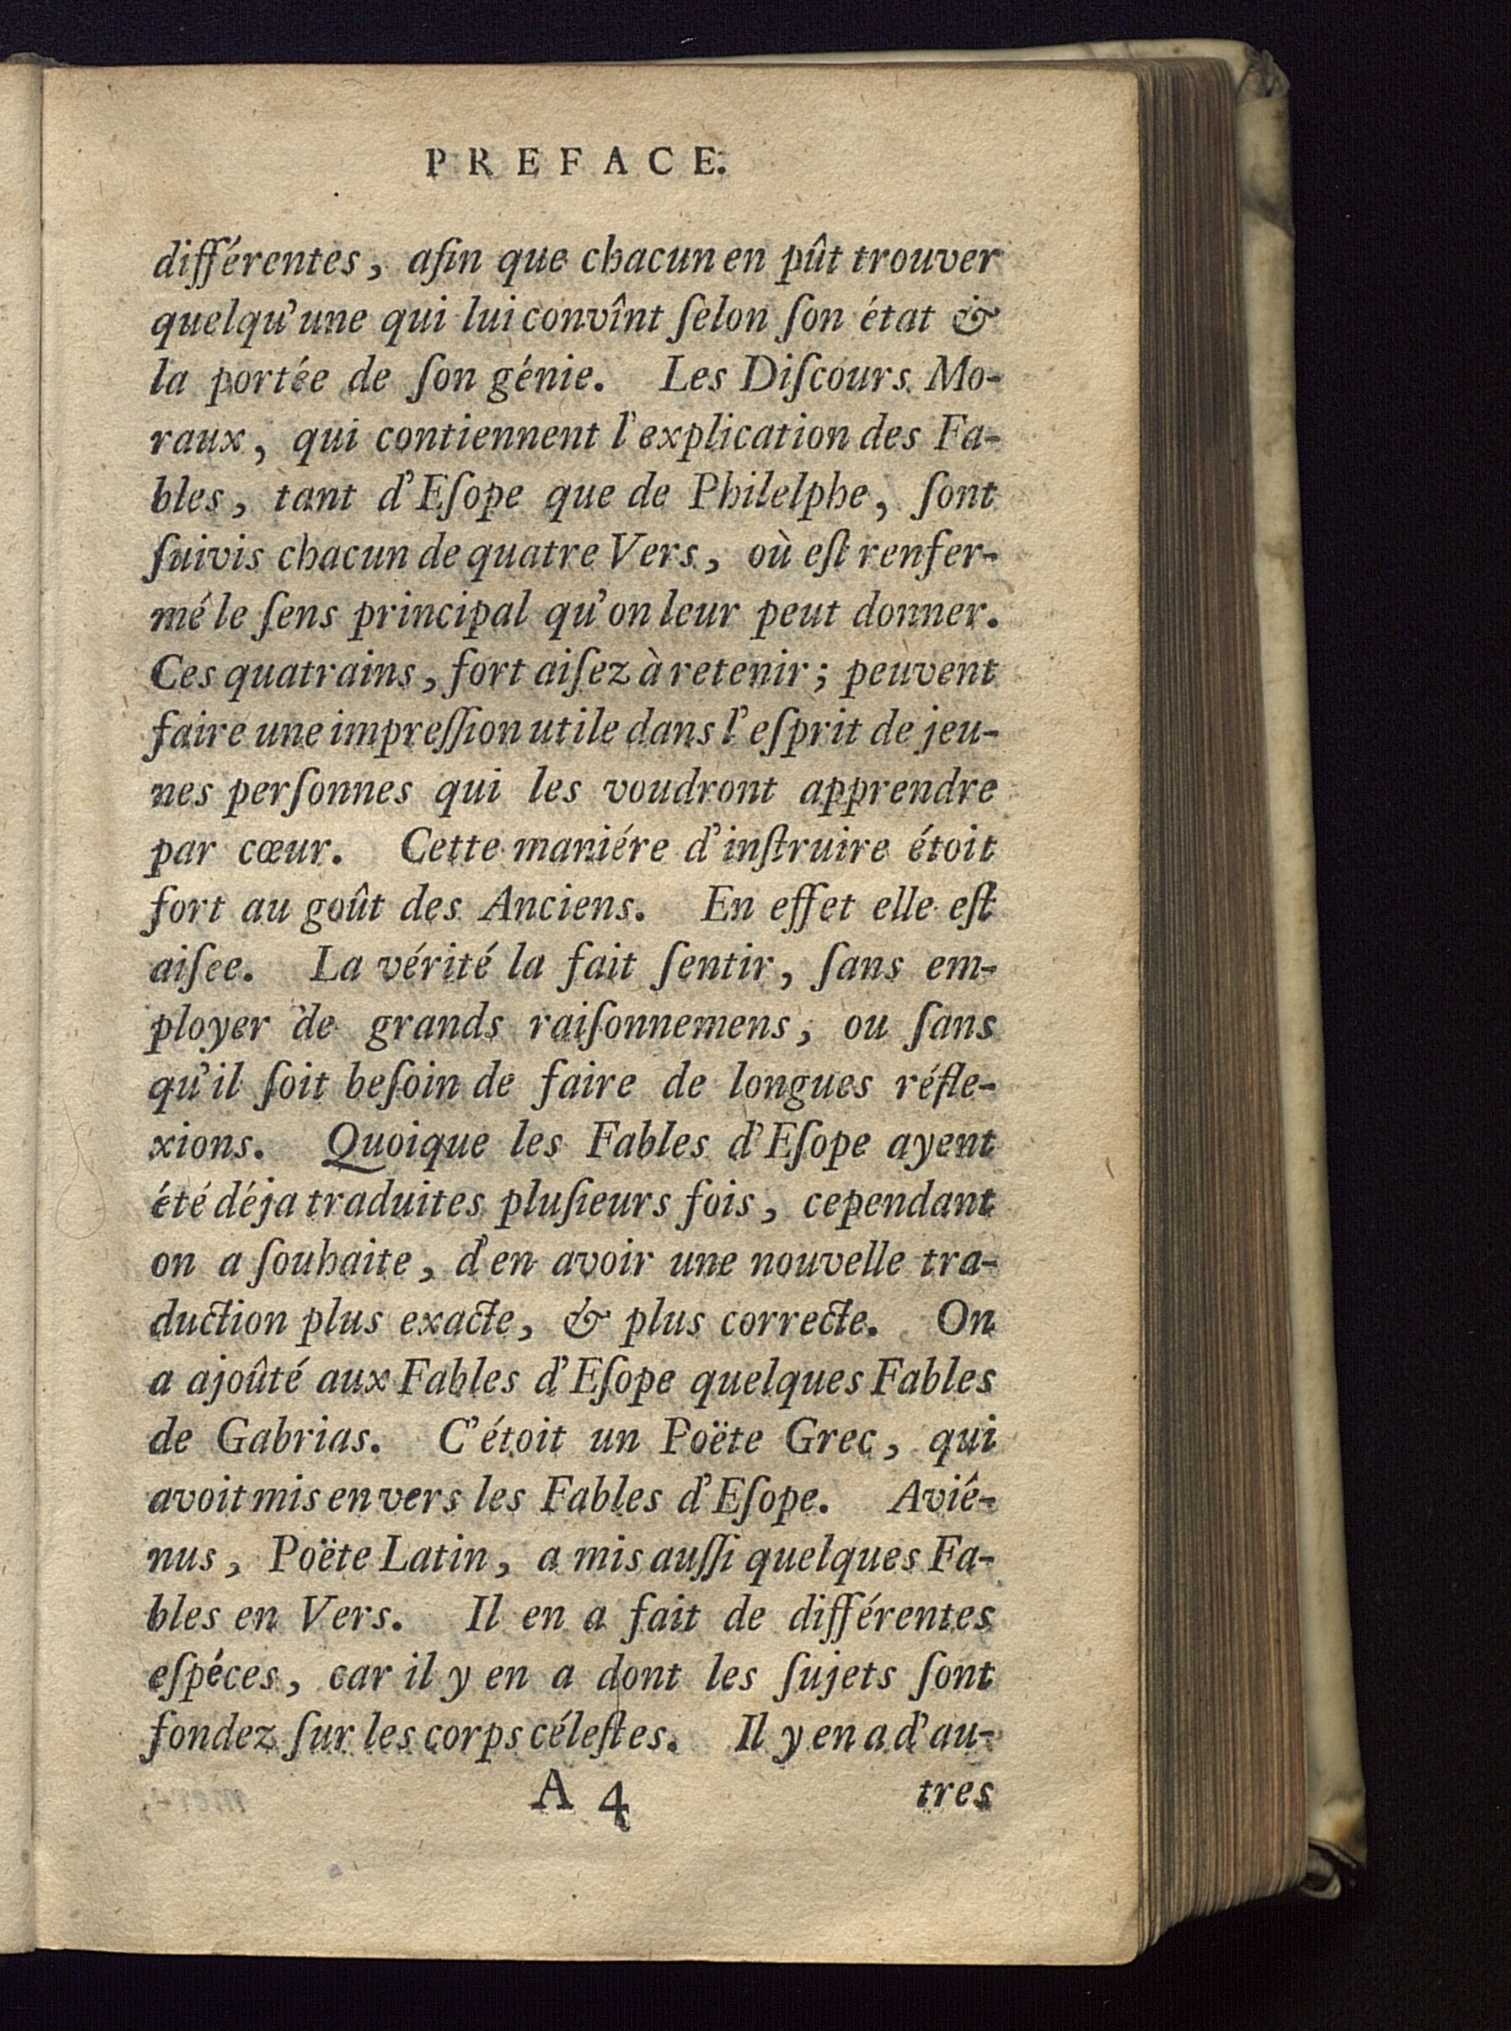 PREFACE.
différentes, afin que chacun en pût trouver
quelqu'une qui lui convînt ſelon ſon état &
la portée de ſon génie. Les Diſcours Mo-
raux, qui contiennent l'explication des Fa-
bles, tant d'Eſope que de Philelphe, ſont
ſuivis chacun de quatre Vers, où eſt renfer-
mé le ſens principal qu'on leur peut donner.
Ces quatrains, fort aiſez à retenir; peuvent
faire une impreſſion utile dans l'eſprit de jeu-
nes perſonnes qui les voudront apprendre
par cœur. Cette maniére d'inſtruire étoit
fort au goût des Anciens. En effet elle eſt
aiſee. La vérité la fait ſentir, ſans em-
ployer de grands raiſonnemens, ou ſans
qu'il ſoit beſoin de faire de longues réfle-
xions. Quoique les Fables d'Eſope ayent
été déja traduites pluſieurs fois, cependant
on a ſouhaite, d'en avoir une nouvelle tra-
duction plus exacte, & plus correcte. On
a ajoûté aux Fables d'Eſope quelques Fables
de Gabrias. C'étoit un Poëte Grec, qui
avoit mis en vers les Fables d'Eſope. Avié-
nus, Poëte Latin, a mis auſſi quelques Fa-
bles en Vers. Il en a fait de différentes
eſpéces, car il y en a dont les ſujets ſont
fondez ſur les corps céleſtes. Il y en a d'au-
A 4 tres